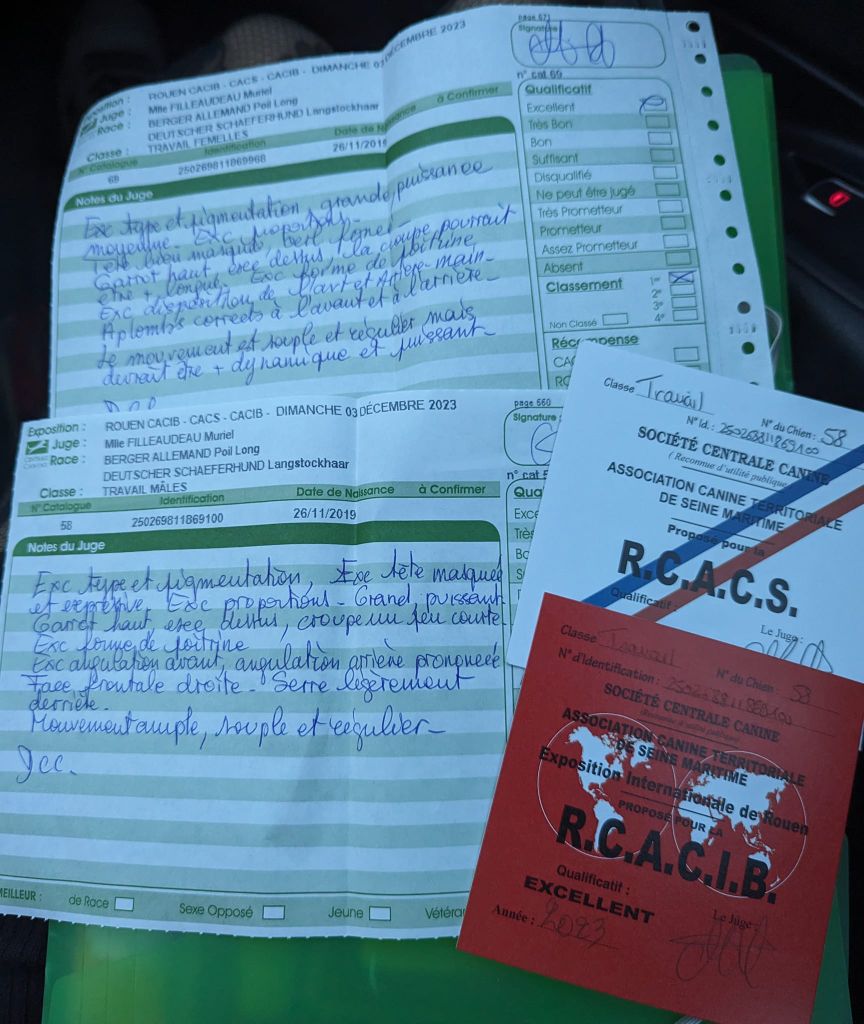 page 671
Signature
Exposition : ROUEN CACIB - CACS - CACIB - DIMANCHE 03 DÉCEMBRE 2023
Juge : Mlle FILLEAUDEAU Muriel
Race : BERGER ALLEMAND Poil Long
DEUTSCHER SCHAEFERHUND Langstockhaar
Classe : TRAVAIL FEMELLES
N° Catalogue Identification Date de Naissance à Confirmer
68 250269811869968 26/11/2019
Notes du Juge
Exc type et pigmentation, grande, puissance
moyenne - Exc proportions -
Tête bien masquée,
Garrot haut, exc dessus, la croupe pourrait
être + longue. Exc forme de poitrine
Exc disposition de l'avt et Arrière-main -
Aplombs corrects à l'avant et à l'arrière -
Le mouvement est souple et régulier mais
devrait être + dynamique et puissant -
n° cat 69
Qualificatif
Excellent
Très Bon
Bon
Suffisant
Disqualifié
Ne peut être jugé
Très Prometteur
Prometteur
Assez Prometteur
Absent
Classement 1er
2e
3e
Non Classé 4e
Récompense
CAC
RC
page 660
Exposition : ROUEN CACIB - CACS - CACIB - DIMANCHE 03 DÉCEMBRE 2023
Signature
Juge : Mlle FILLEAUDEAU Muriel
Race : BERGER ALLEMAND Poil Long
DEUTSCHER SCHAEFERHUND Langstockhaar
Classe : TRAVAIL MÂLES
N° Catalogue Identification Date de Naissance à Confirmer
58 250269811869100 26/11/2019
Notes du Juge
Exc type et pigmentation, Exc tête masquée
et expressive. Exc proportions - Grand, puissant
Garrot haut, exc dessus, croupe un peu courte
Exc forme de poitrine
Exc angulation avant, angulation arrière prononcée
Face frontale droite - Serre légèrement
derrière -
Mouvement ample, souple et régulier -
n° cat
Qua
Exce
Très
MEILLEUR : de Race Sexe Opposé Jeune Vétéra
Classe Travail
N° Id. : N° du Chien : 58
SOCIÉTÉ CENTRALE CANINE
( Reconnue d'utilité publique
ASSOCIATION CANINE TERRITORIALE
DE SEINE MARITIME
Proposé pour la
R.C.A.C.S.
Qualificatif :
Le Juge :
Classe Travail
N° d'Identification : N° du Chien : 58
SOCIÉTÉ CENTRALE CANINE
ASSOCIATION CANINE TERRITORIALE
DE SEINE MARITIME
Exposition Internationale de Rouen
PROPOSÉ POUR LA
R.C.A.C.I.B.
Qualificatif :
EXCELLENT
Année : 2023
Le Juge